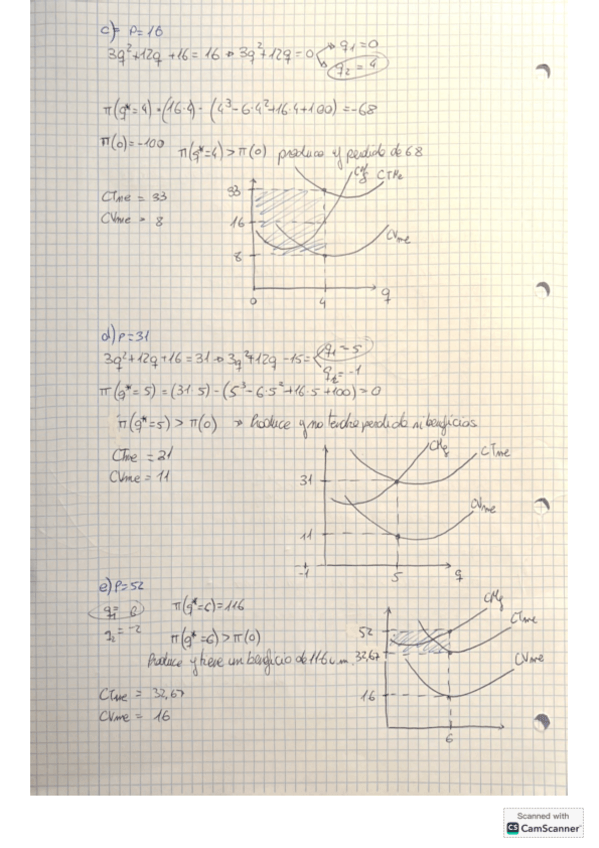 c) P=16
3q²+12q+16=16 → 3q²+12q=0 q₁=0
q₂=4
π(q*=4)=(16·4)-(4³-6·4²+16·4+100)=-68
π(0)=-100 π(q*=4)>π(0) produce y perdida de 68
CTme = 33
CVme = 8
33 CMg CTMe
16 CVme
8
0 4 q
d) P=31
3q²+12q+16=31 → 3q²+12q-15= q₁=5
q₂=-1
π(q*=5)=(31·5)-(5³-6·5²+16·5+100)=0
π(q*=5)>π(0) → Produce y no tendra perdida ni beneficios
CTme = 21
CVme = 11
CMg CTme
31
CVme
11
-1 5 q
e) P=52
q₁= 6 π(q*=6)=116
q₂=-2 π(q*=6)>π(0)
Produce y tiene un beneficio de 116 u.m.
CTme = 32,67
CVme = 16
CMg
52 CTme
32,67 CVme
16
6
Scanned with
CS CamScanner